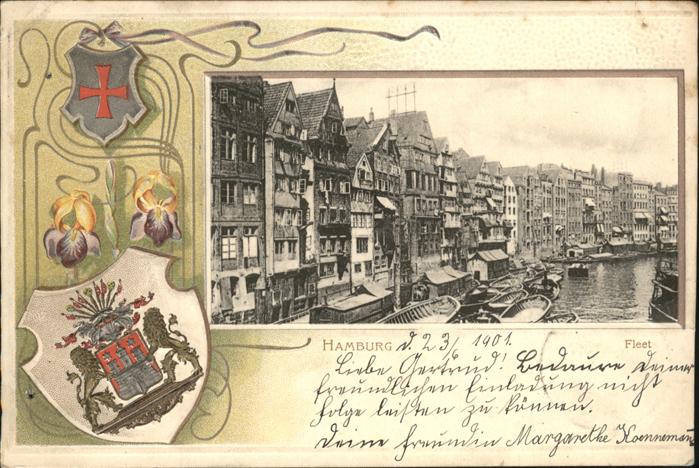 HAMBURG d. 23/ 1901.
Fleet
Liebe Gertrud! Bedaure Deiner
freundlichen Einladung nicht
folge leisten zu können.
Deine Freundin Margarethe Koenneman